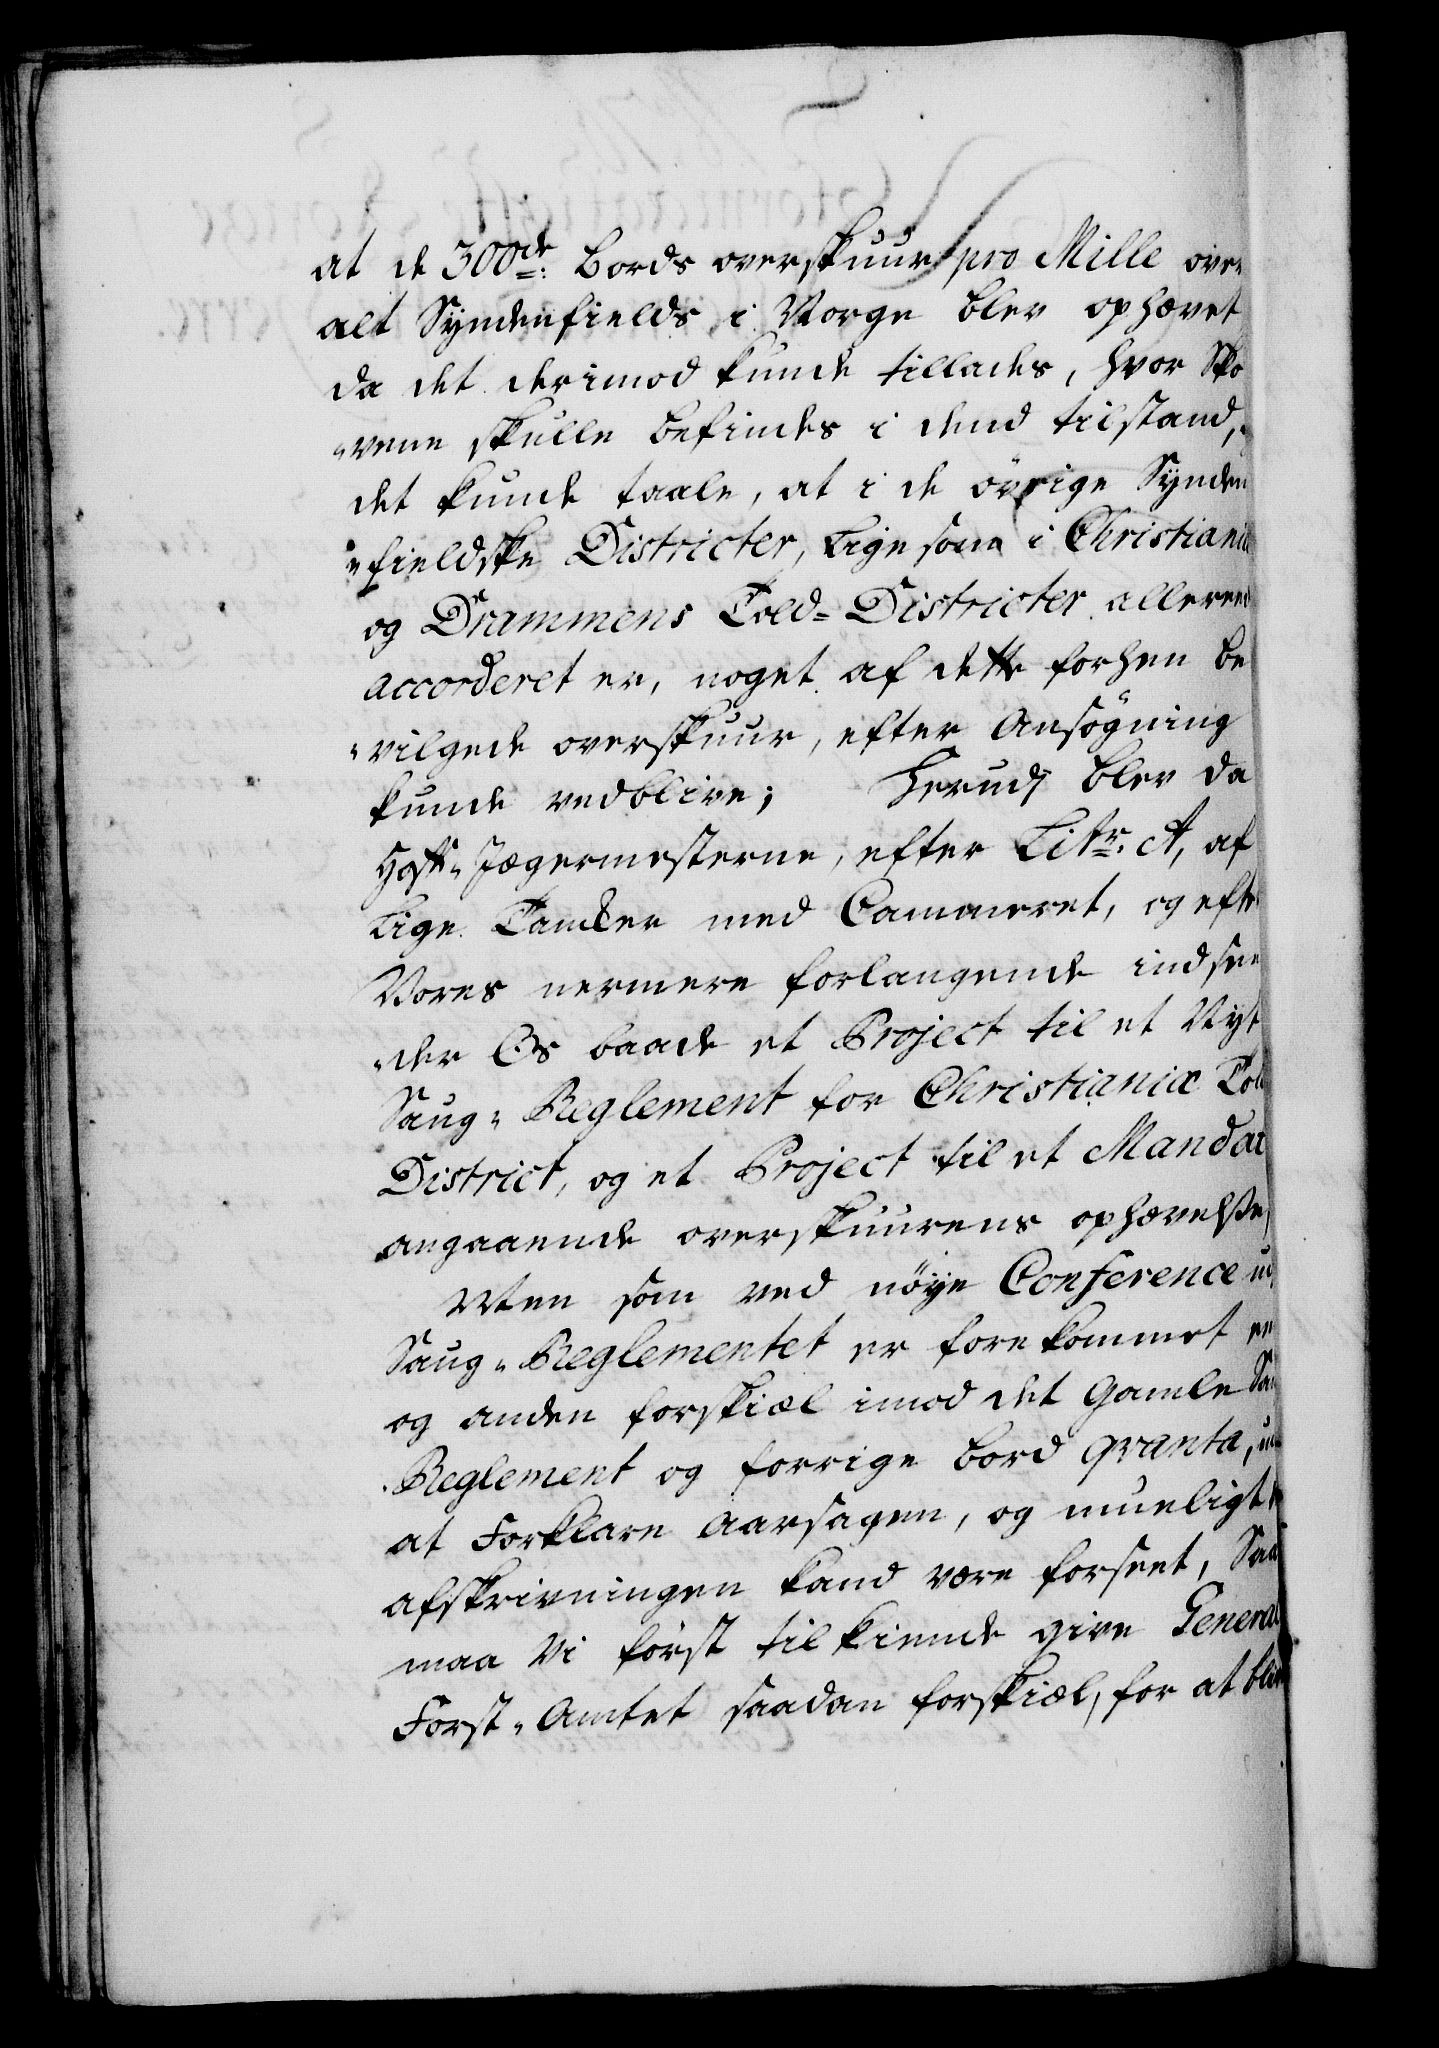 at de 300de: Bords overskuur pro Mille over
alt Syndenfields i Norge blev ophævet
da det derimod kunde tillades, hvor Sko
"vene skulle befindes i dend tilstand,
det kunde taale, at i de övrige Synden
"fieldske Districter, ligesom i Christiania
og Drammens Told-Districter allereede
accorderet er, noget af dette forhen be
"vilgede overskuur, efter Ansögning
kunde vedblive; Herudj blev da
Hoff-Jægermesterne, efter Litr. A, af
lige Tancker med Cammeret, og efter
Vores nermere forlangende indsen
"der Os baade et Project til et Nyt
Saug-Reglement for Christianiæ Told
District, og et Project til et Mandat
angaaende overskuurens ophævelße,
Men som ved nöye Conference ud
Saug-Reglementet er forekommet een
og anden forskiæl imod det Gamle Saug
Reglement og forrige bord qvanta,
at Forklare Aarsagen, og mueligt
afskrivningen kand være forseet, Saa
maa Vi først tilkiende give General
Forst-Amtet saadan forskiæl, for at blive